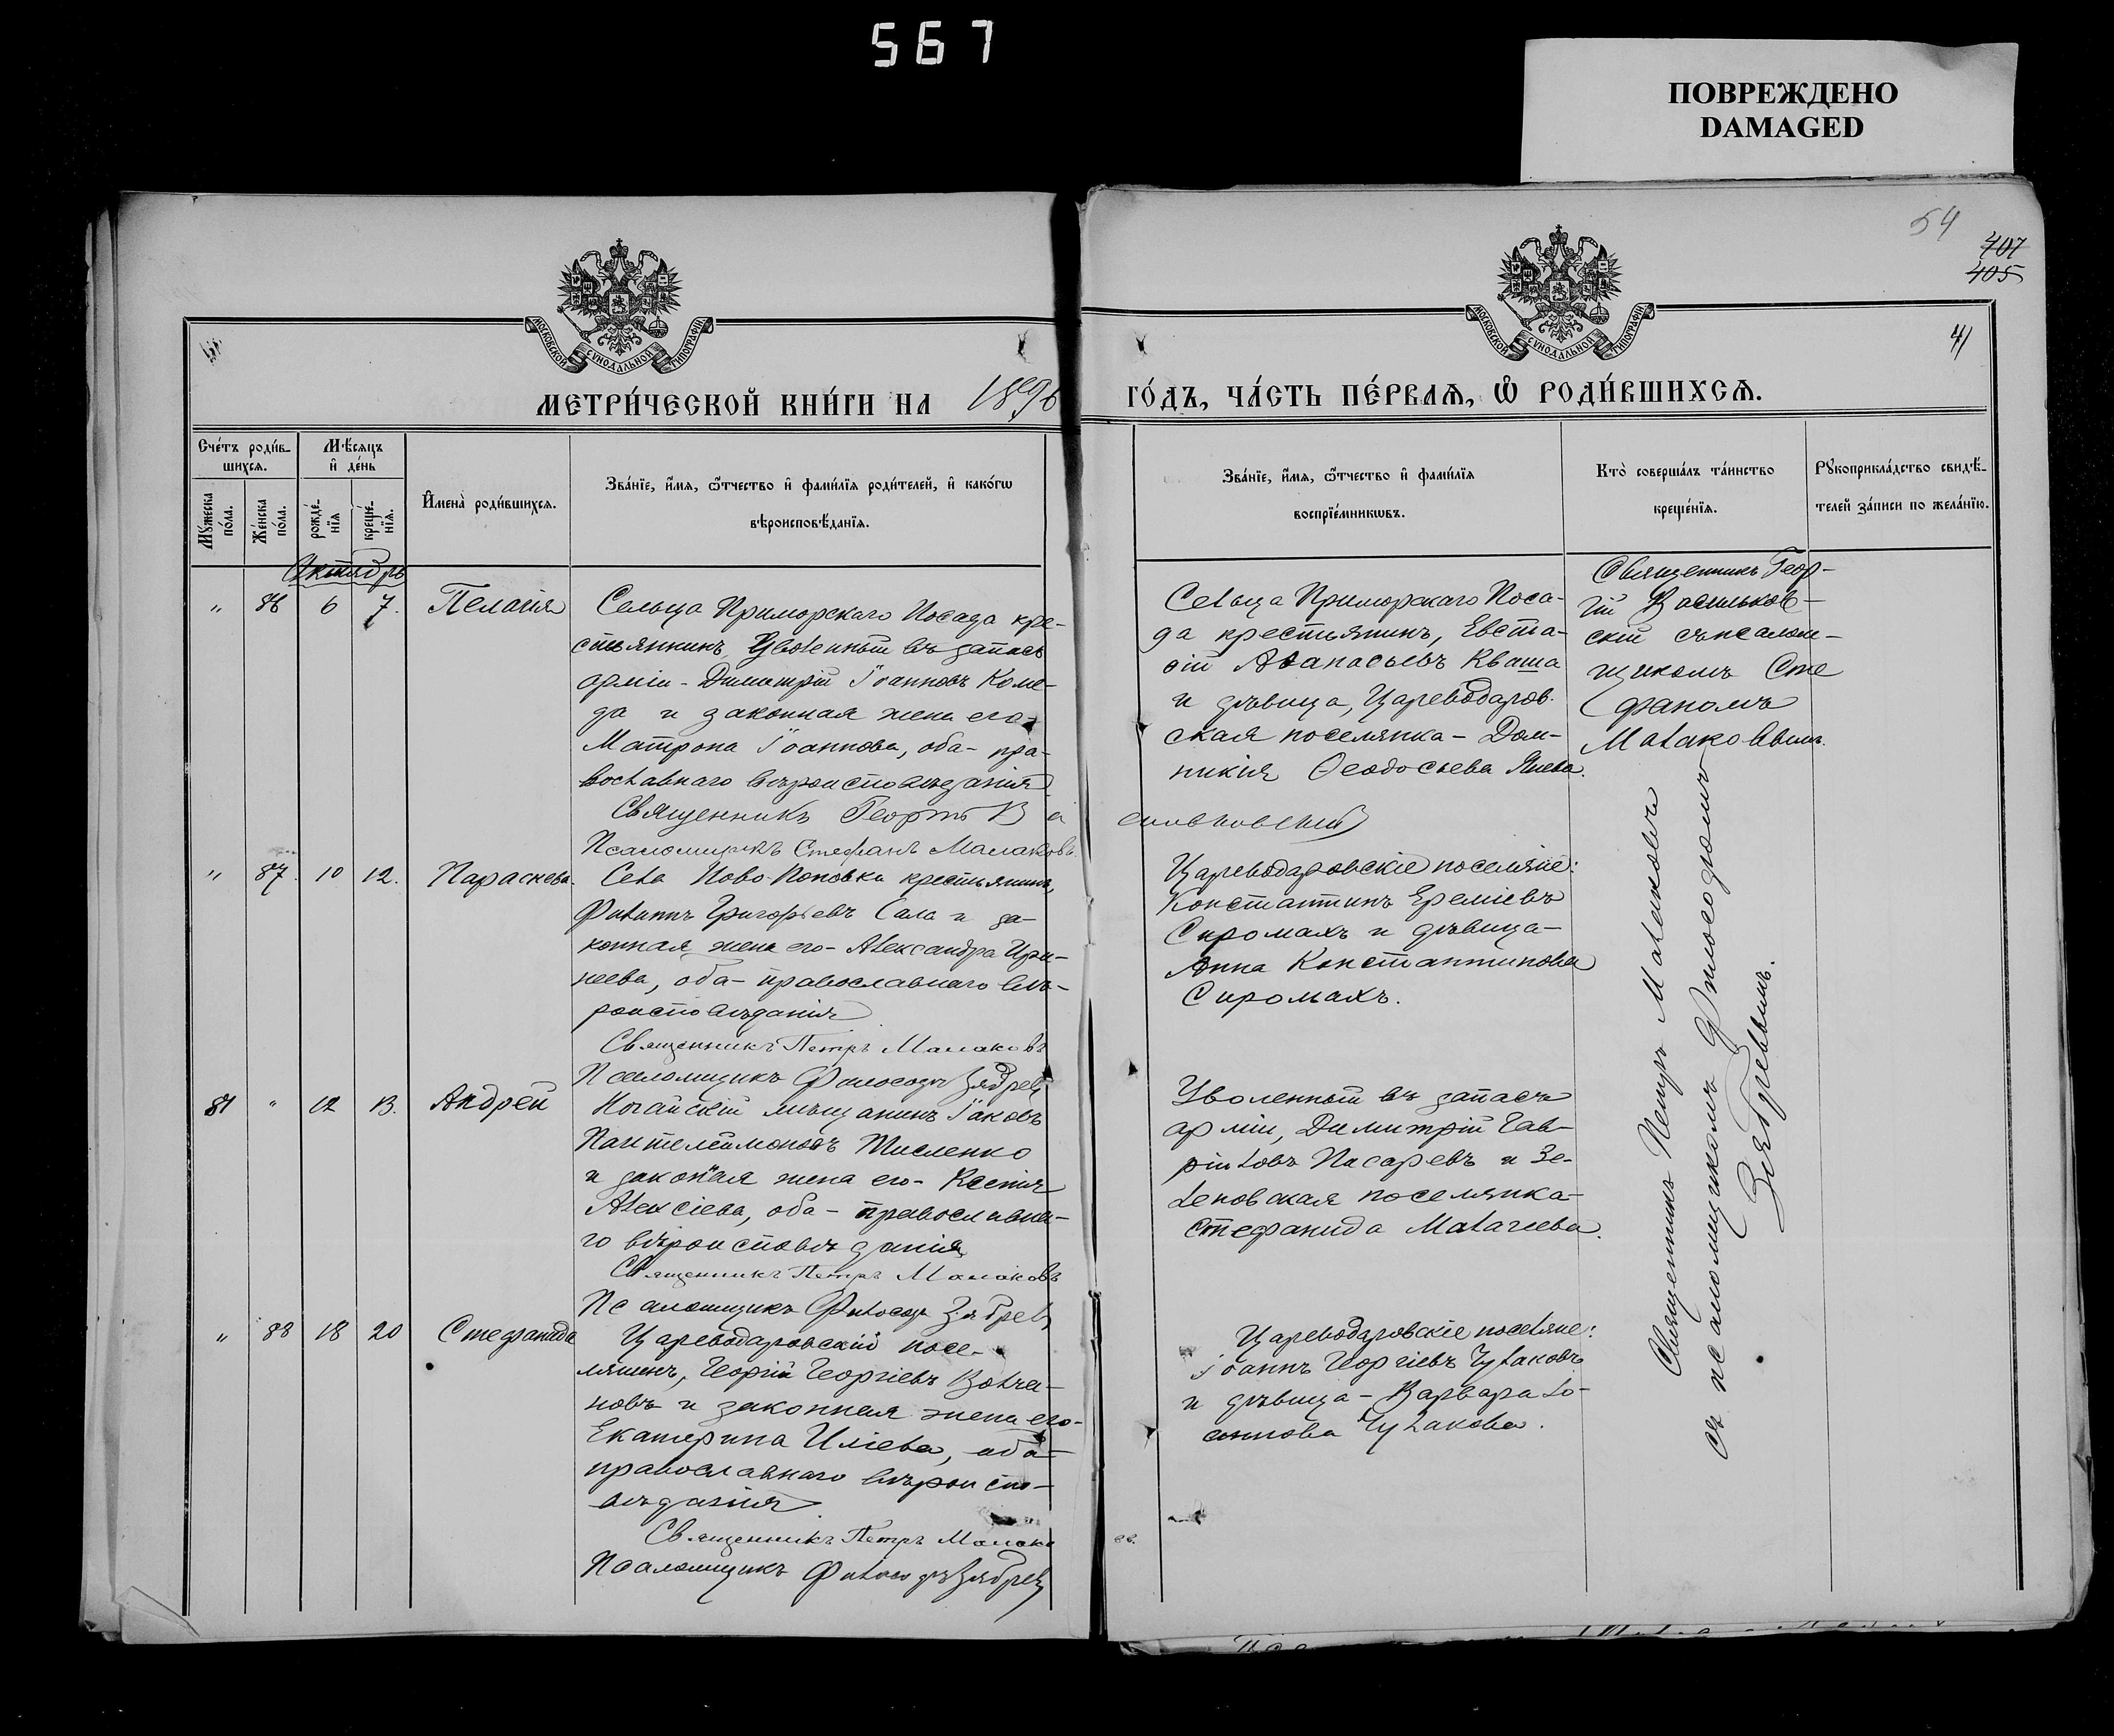 567
ПОВРЕЖДЕНО
DAMAGED
54
407
405
41
МОСКОВСКОЙ СѴНОДАЛЬНОЙ ТИПОГРАФІИ
МОСКОВСКОЙ СѴНОДАЛЬНОЙ ТИПОГРАФІИ
МЕТРИ́ЧЕСКОЙ КНИ́ГИ НА 1896
ГО́ДЪ, ЧА́СТЬ ПЕ́РВАѦ, Ѡ҆ РОДИ́ВШИХСѦ.
Сче́тъ роди́в-
шихсѧ.
Мѣ́сѧцъ
и҆ де́нь
Мꙋ́жеска
по́ла.
Же́нска
по́ла.
рожде́-
нїѧ
креще́-
нїѧ.
И҆мена̀ роди́вшихсѧ.
Зва́нїе, и҆́мѧ, ѻ҆́тчество и҆ фами́лїѧ роди́телей, и҆ како́гѡ
вѣроисповѣ́данїѧ.
Зва́нїе, и҆́мѧ, ѻ҆́тчество и҆ фами́лїѧ
воспрїе́мникѡвъ.
Кто̀ соверша́лъ та́инство
креще́нїѧ.
Рꙋкоприкла́дство свидѣ́-
телей за́писи по жела́нїю.
Октябрь
" 86 6 7. Пелагія
Сельца Приморскаго Посада кре-
стьянинъ, Уволенный въ запасъ
арміи - Димитрій Іоанновъ Коме-
да и законная жена его -
Матрона Іоаннова, оба - пра-
вославнаго вѣроисповѣданія
Священникъ Георгій Ва
сильковскій
Псаломщикъ Стефанъ Малаковъ.
Сельца Приморскаго Поса-
да крестьянинъ, Евста-
ѳій Аѳанасьевъ Кваша
и дѣвица, Цареводаров.
ская поселянка - Дом-
никія Ѳеодосьева Янева.
Священникъ Геор-
гій Васильков-
скій съ псалом-
щикомъ Сте
фаномъ
Малаковымъ.
" 87. 10 12. Параскева.
Села Ново Поповка крестьянинъ,
Филиппъ Григорьевъ Сала и за-
конная жена его - Александра Ири-
неева, оба - православнаго вѣ-
роисповѣданія
Священникъ Петръ Малаковъ
Псаломщикъ Философъ Зябревъ
Цареводаровскіе поселяне:
Константинъ Ереміевъ
Сиромахъ и дѣвица -
Анна Константинова
Сиромахъ.
81 " 12 13. Андрей
Ногайскій мѣщанинъ Іаковъ
Пантелеймоновъ Тисленко
и законная жена его - Ксенія
Алексіева, оба - православна-
го вѣроисповѣданія
Священникъ Петръ Малаковъ
Псаломщикъ Философъ Зябревъ
Уволенный въ запасъ
арміи, Димитрій Гав-
ріиловъ Писаревъ и Зе-
леновская поселянка -
Стефанида Малачева.
" 88 18 20 Стефанида
Цареводаровскій посе-
лянинъ, Георгій Георгіевъ Волча-
новъ и законная жена его -
Екатерина Иліева, оба -
православнаго вѣроиспо-
вѣданія
Священникъ Петръ Малако
въ.
Псаломщикъ Философъ Зябревъ
Цареводаровскіе поселяне:
Іоаннъ Георгіевъ Чулаковъ
и дѣвица - Варвара Іо-
аннова Чулакова.
Священникъ Петръ Малаковъ
съ псаломщикомъ Философомъ
Зябревымъ.